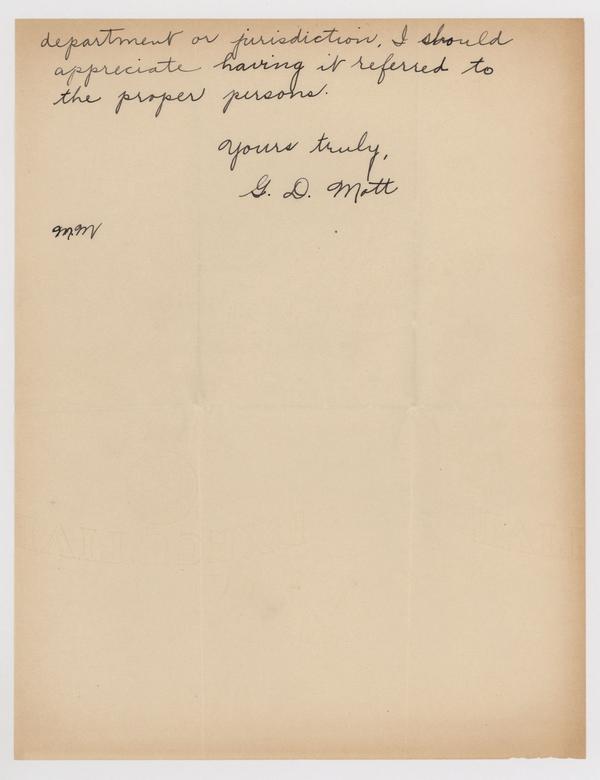 department or jurisdiction, I should
appreciate having it referred to
the proper persons.
Yours truly,
G. D. Mott